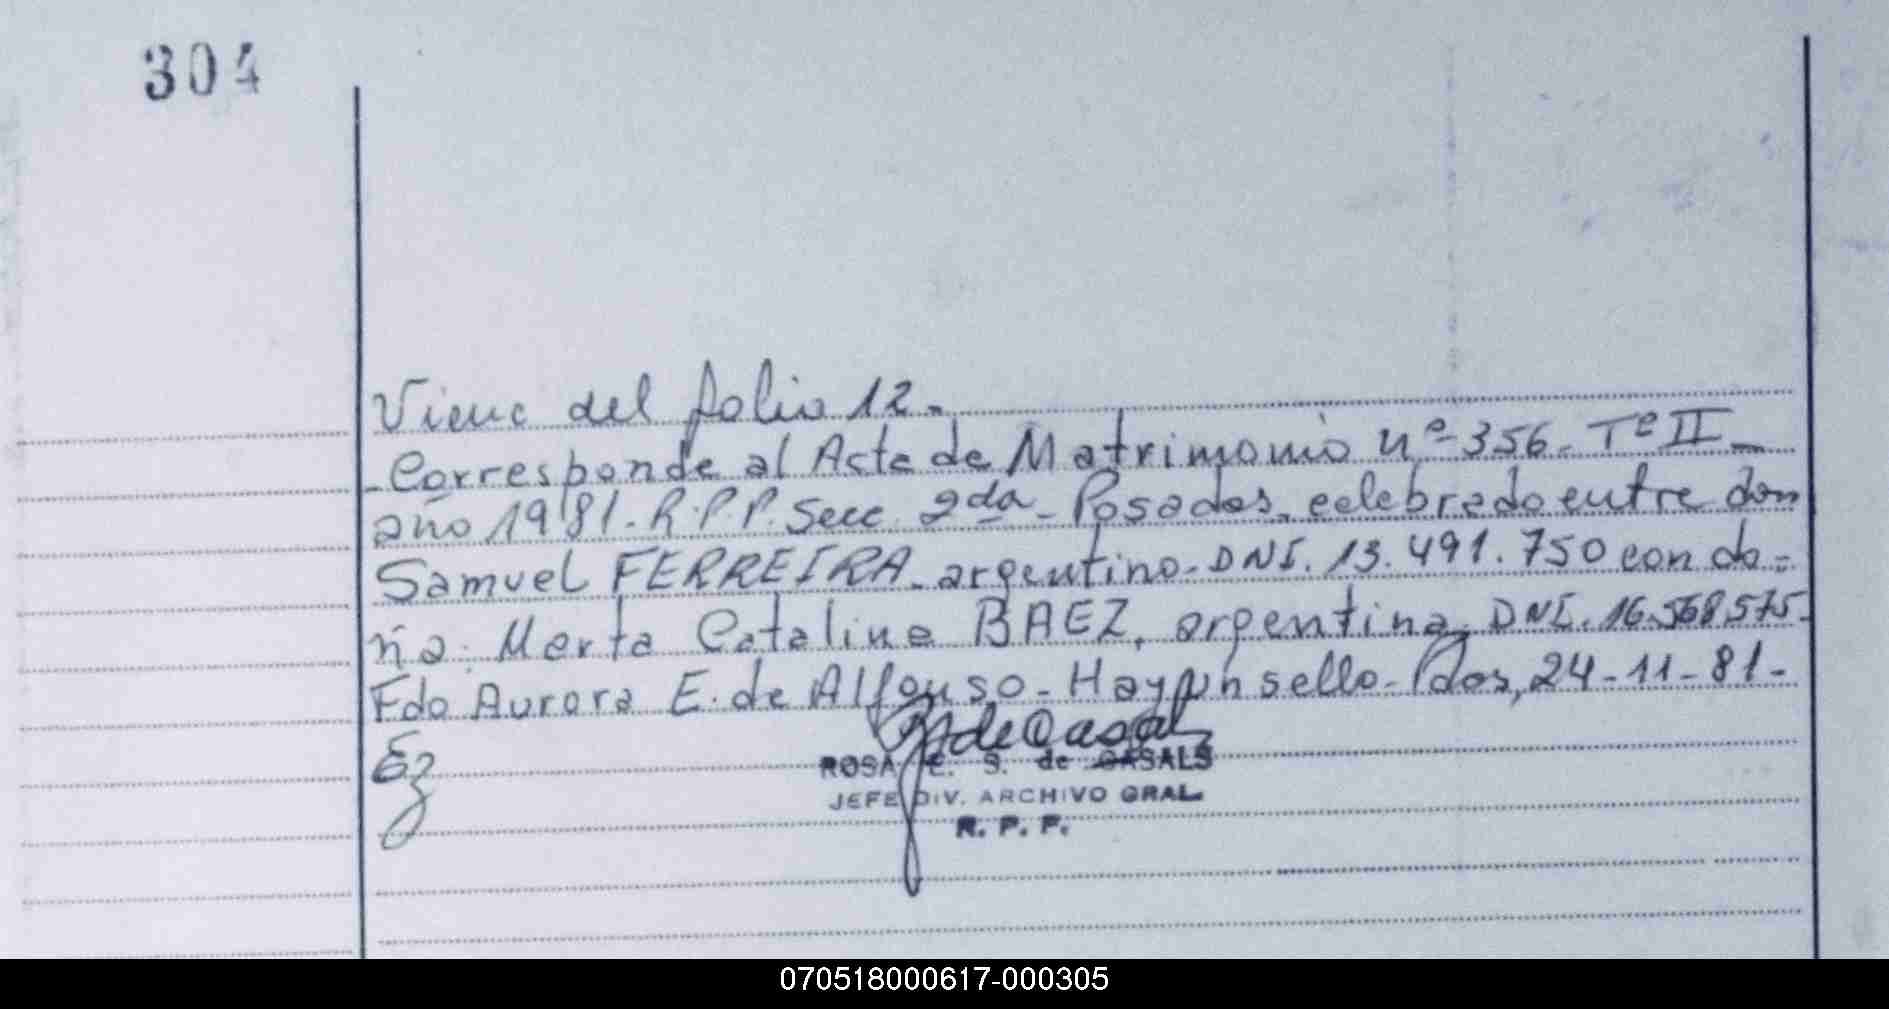 304
Viene del folio 12.
- Corresponde al Acta de Matrimonio nº 356 - Tº II -
año 1981. R.P.P. Secc. 2da - Posadas, celebrado entre don
Samuel FERREIRA - argentino - DNI. 13.491.750 con do=
ña: Marta Catalina BAEZ, argentina. DNI. 16.568575-
Fdo Aurora E. de Alfonso - Hay un sello - Pdas, 24-11-81-
Ez
ROSA E. S. de CASALS
JEFE DIV. ARCHIVO GRAL
R. P. P.
070518000617-000305